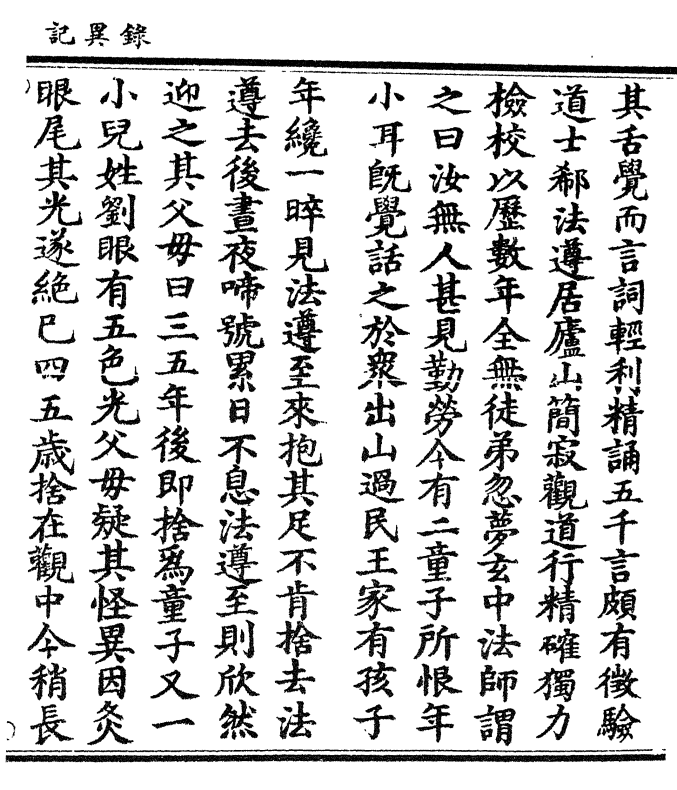 錄異記
其舌覺而言詞輕利精誦五千言頗有徵驗
道士郗法遵居廬山簡寂觀道行精確獨力
檢校以歷數年全無徒弟忽夢玄中法師謂
之曰汝無人甚見勤勞今有二童子所恨年
小耳旣覺話之於衆出山過民王家有孩子
年纔一晬見法遵至來抱其足不肯捨去法
遵去後晝夜啼號累日不息法遵至則欣然
迎之其父毋曰三五年後即捨爲童子又一
小兒姓劉眼有五色光父毋疑其怪異因灸
眼尾其光遂絕巳四五歲捨在觀中今稍長